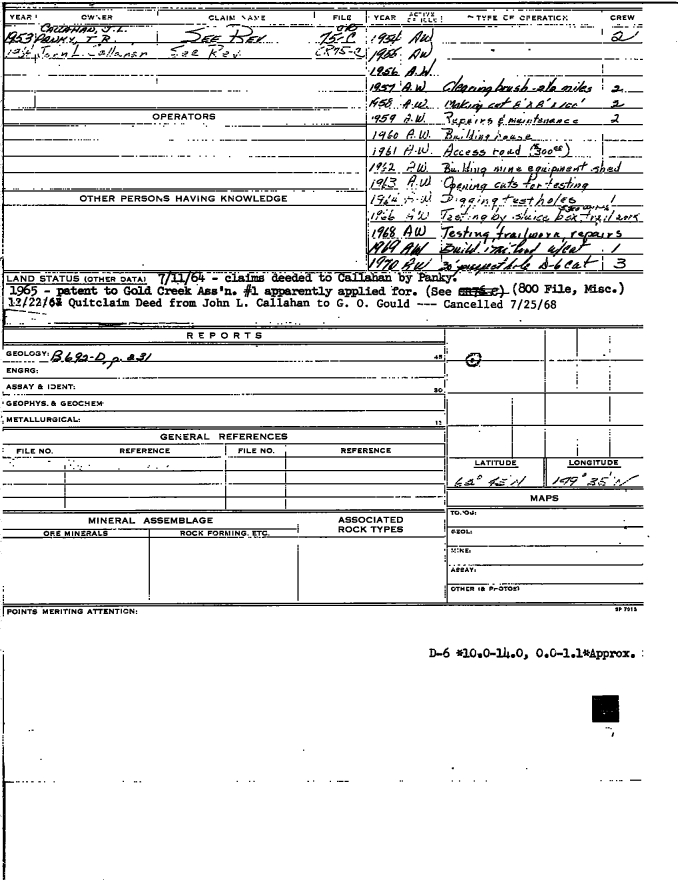 YEAR OWNER CLAIM NAME FILE YEAR ACTIVE TYPE OF OPERATION CREW
CALLAHAN, J.L. OR
1953 PANKY, T.R. SEE REV. 75-C 1954 AW 2
John L. Callahan See Rev. CR75-C 1955 AW
1956 A.W.
1957 A.W. Clearing brush miles 2
1958 A.W. Making cut 2
OPERATORS 1959 A.W. Repairs & maintenance 2
1960 A.W. Building house
1961 A.W. Access road
1962 A.W. Building mine equipment shed
1963 A.W. Opening cuts for testing
OTHER PERSONS HAVING KNOWLEDGE 1964 A.W. Digging test holes 1
AW Testing by sluice box, trail work
1968 AW Testing, trailwork, repairs
1969 AW 1
1970 AW D-6 Cat 3
LAND STATUS (OTHER DATA) 7/11/64 - claims deeded to Callahan by Panky.
1965 - patent to Gold Creek Ass'n. #1 apparently applied for. (See (800 File, Misc.)
Quitclaim Deed from John L. Callahan to G. O. Gould --- Cancelled 7/25/68
REPORTS
GEOLOGY: B692-D, p. 231 45
ENGRG:
ASSAY & IDENT: 30
GEOPHYS. & GEOCHEM
METALLURGICAL: 15
GENERAL REFERENCES
FILE NO. REFERENCE FILE NO. REFERENCE
LATITUDE LONGITUDE
149° 35'
MAPS
MINERAL ASSEMBLAGE ASSOCIATED ROCK TYPES
ORE MINERALS ROCK FORMING, ETC.
GEOL:
MINE:
ASSAY:
OTHER (& PHOTOS)
POINTS MERITING ATTENTION:
D-6 *10.0-14.0, 0.0-1.1*Approx.